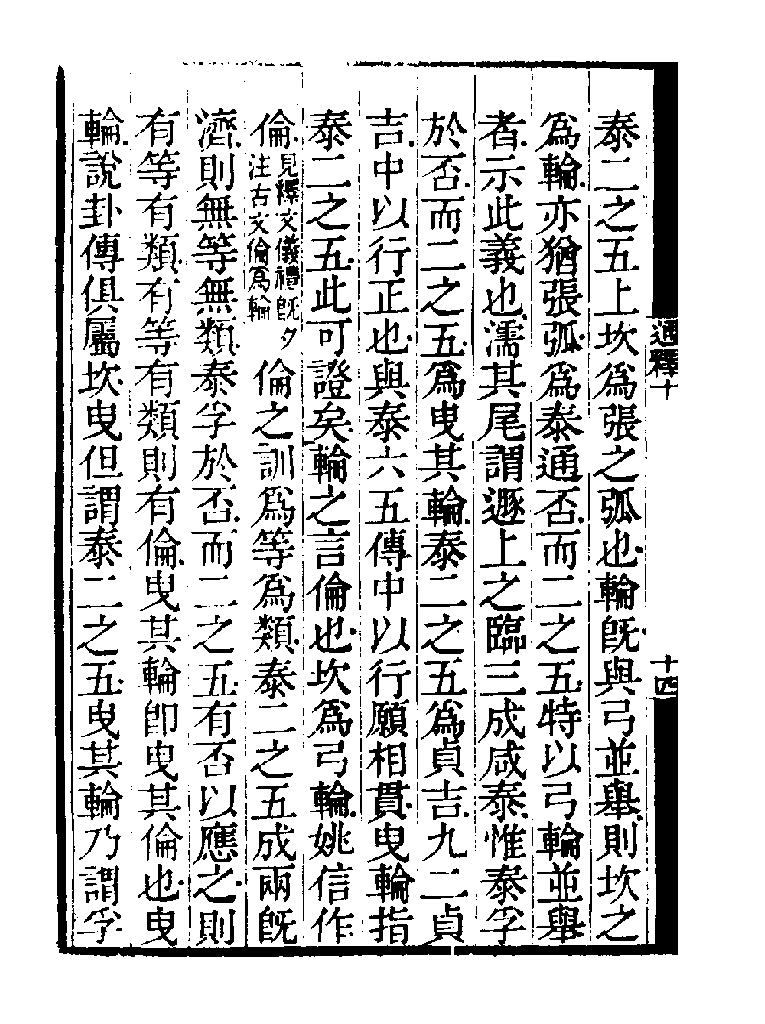 泰二之五上坎爲張之弧也輪旣與弓並舉則坎之
爲輪亦猶張弧爲泰通否而二之五特以弓輪並舉
者示此義也濡其尾謂遯上之臨三成咸泰惟泰孚
於否而二之五爲曳其輪泰二之五爲貞吉九二貞
吉中以行正也與泰六五傳中以行願相貫曳輪指
泰二之五此可證矣輪之言倫也坎爲弓輪姚信作
倫見釋文儀禮旣夕注古文倫爲輪倫之訓爲等爲類泰二之五成兩旣
濟則無等無類泰孚於否而二之五有否以應之則
有等有類有等有類則有倫曳其輪卽曳其倫也曳
輪說卦傳俱屬坎曳但謂泰二之五曳其輪乃謂孚
通釋十
十四